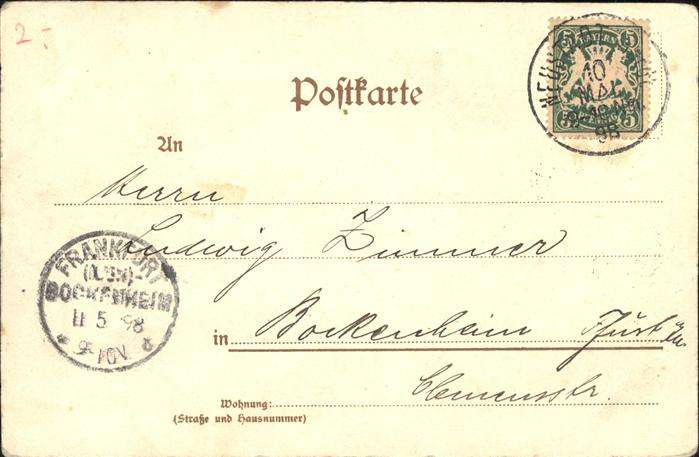 2.-
5 BAYERN 5
NEUSTADT
10
MAI
98
5 PFENNIG 5
Postkarte
An
Herrn
Ludwig Zimmer
FRANKFURT
BOCKENHEIM
11 5 98
9-10V
in Bockenheim
Clemensstr.
Wohnung:
(Straße und Hausnummer)